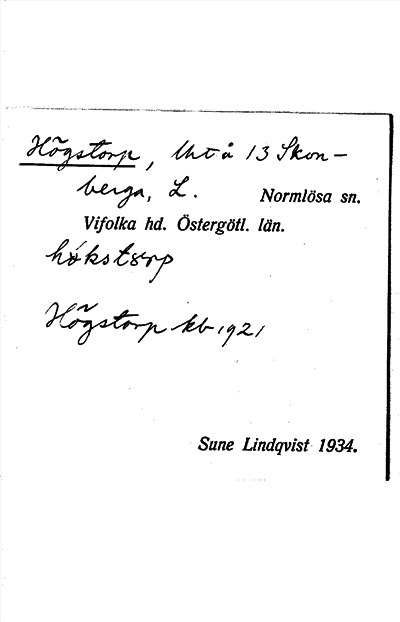 Högstorp, Uvt å 13 Skon-
berga, L. Normlösa sn.
Vifolka hd. Östergötl. län.
Högstorp kb 1921
Sune Lindqvist 1934.